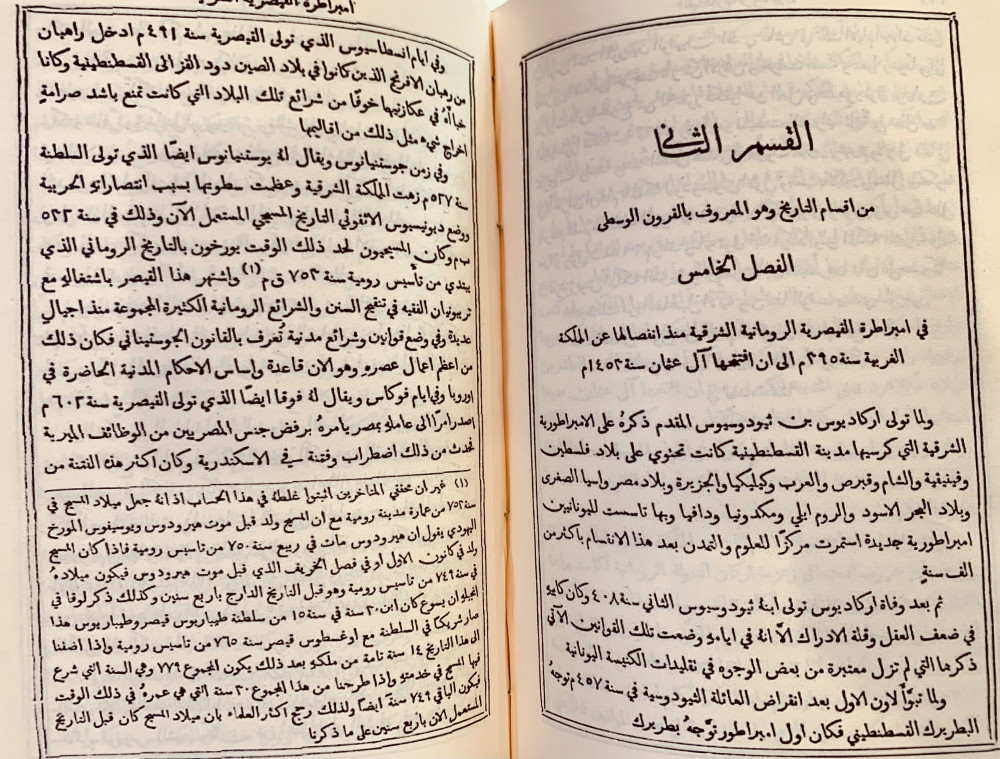 القسم الثاني
من اقسام التاريخ وهو المعروف بالقرون الوسطى
الفصل الخامس
في امبراطرة القيصرية الرومانية الشرقية منذ انفصالها عن المملكة
الغربية سنة ٣٩٥م الى ان افتتحها آل عثمان سنة ١٤٥٣م
ولما تولى اركاديوس بن ثيودوسيوس المتقدم ذكرهُ على الامبراطورية
الشرقية التي كرسيها مدينة القسطنطينية كانت تحتوي على بلاد فلسطين
وفينيقية والشام وقبرص والعرب وكيليكيا والجزيرة وبلاد مصر واسيا الصغرى
وبلاد البحر الاسود والروم ايلي ومكدونيا وداقيا وبها تاسست لليونانيين
امبراطورية جديدة استمرت مركزًا للعلوم والتمدن بعد هذا الانقسام باكثر من
الف سنةٍ
ثم بعد وفاة اركاديوس تولى ابنهُ ثيودوسيوس الثاني سنة ٤٠٨ وكان كابيهِ
في ضعف العقل وقلة الادراك الّا انهُ في ايامهِ وضعت تلك القوانين الآتي
ذكرها التي لم تزل معتبرة من بعض الوجوه في تقليدات الكنيسة اليونانية
ولما تبوّأ لاون الاول بعد انقراض العائلة الثيودوسية في سنة ٤٥٧م توجهُ
البطريرك القسطنطيني فكان اول امبراطور توّجهُ بطريرك
امبراطرة القيصرية
وفي ايام انسطاسيوس الذي تولى القيصرية سنة ٤٩١م ادخل راهبان
من رهبان الافرنج الذين كانوا في بلاد الصين دود القز الى القسطنطينية وكانا
خباآهُ في عكازيهما خوفًا من شرائع تلك البلاد التي كانت تمنع باشد صرامةٍ
اخراج شيءٍ مثل ذلك من اقاليمها
وفي زمن جوستنيانوس ويقال لهُ يوستنيانوس ايضًا الذي تولى السلطنة
سنة ٥٢٧م زهت المملكة الشرقية وعظمت سطوتها بسبب انتصاراتهِ الحربية
ووضع ديونيسيوس الاثقوثي التاريخ المسيحي المستعمل الآن وذلك في سنة ٥٢٣
ب م وكان المسيحيون لحد ذلك الوقت يورخون بالتاريخ الروماني الذي
يبتدي من تأسيس رومية سنة ٧٥٣ ق م (١) واشتهر هذا القيصر باشتغالهِ مع
تريبونيان الفقيه في تنقيح السنن والشرائع الرومانية الكثيرة المجموعة منذ اجيالٍ
عديدة وفي وضع قوانين وشرائع مدنية تُعرف بالقانون الجوستنياني فكان ذلك
من اعظم اعمال عصرهِ وهو الان قاعدة واساس الاحكام المدنية الحاضرة في
اوروبا وفي ايام فوكاس ويقال لهُ فوقا ايضًا الذي تولى القيصرية سنة ٦٠٢ م
اصدر امرًا الى عاملهِ بمصر يامرهُ برفض جنس المصريين من الوظائف الميرية
فحدث من ذلك اضطراب وفتنة في الاسكندرية وكان اكثر هذه الفتنة من
(١) غير ان محققي المتاخرين اثبتوا غلطهُ في هذا الحساب اذ انهُ جعل ميلاد المسيح في
سنة ٧٥٣ من عمارة مدينة رومية مع ان المسيح ولد قبل موت هيرودوس ويوسيفوس المورخ
اليهودي يقول ان هيرودوس مات في ربيع سنة ٧٥٠ من تاسيس رومية فاذا كان المسيح
ولد في كانون الاول او في فصل الخريف الذي قبل موت هيرودوس فيكون ميلادهُ
في سنة ٧٤٩ من تاسيس رومية وهو قبل التاريخ الدارج باربع سنين وكذلك ذكر لوقا في
انجيلهِ ان يسوع كان ابن ٣٠ سنة في سنة ١٥ من سلطنة طيباريوس قيصر وطيباريوس هذا
صار شريكًا في السلطنة مع اوغسطوس قيصر سنة ٧٦٥ من تاسيس رومية واذا اضفنا
الى هذا التاريخ ١٤ سنة تامة من ملكهِ بعد ذلك يكون المجموع ٧٧٩ وهي السنة التي شرع
فيها المسيح في خدمتهِ واذا طرحنا من هذا المجموع ٣٠ سنة التي هي عمرهُ في ذلك الوقت
فيكون الباقي ٧٤٩ سنة ايضًا ولذلك رجح اكثر العلماء بان ميلاد المسيح كان قبل التاريخ
المستعمل الان باربع سنين على ما ذكرنا